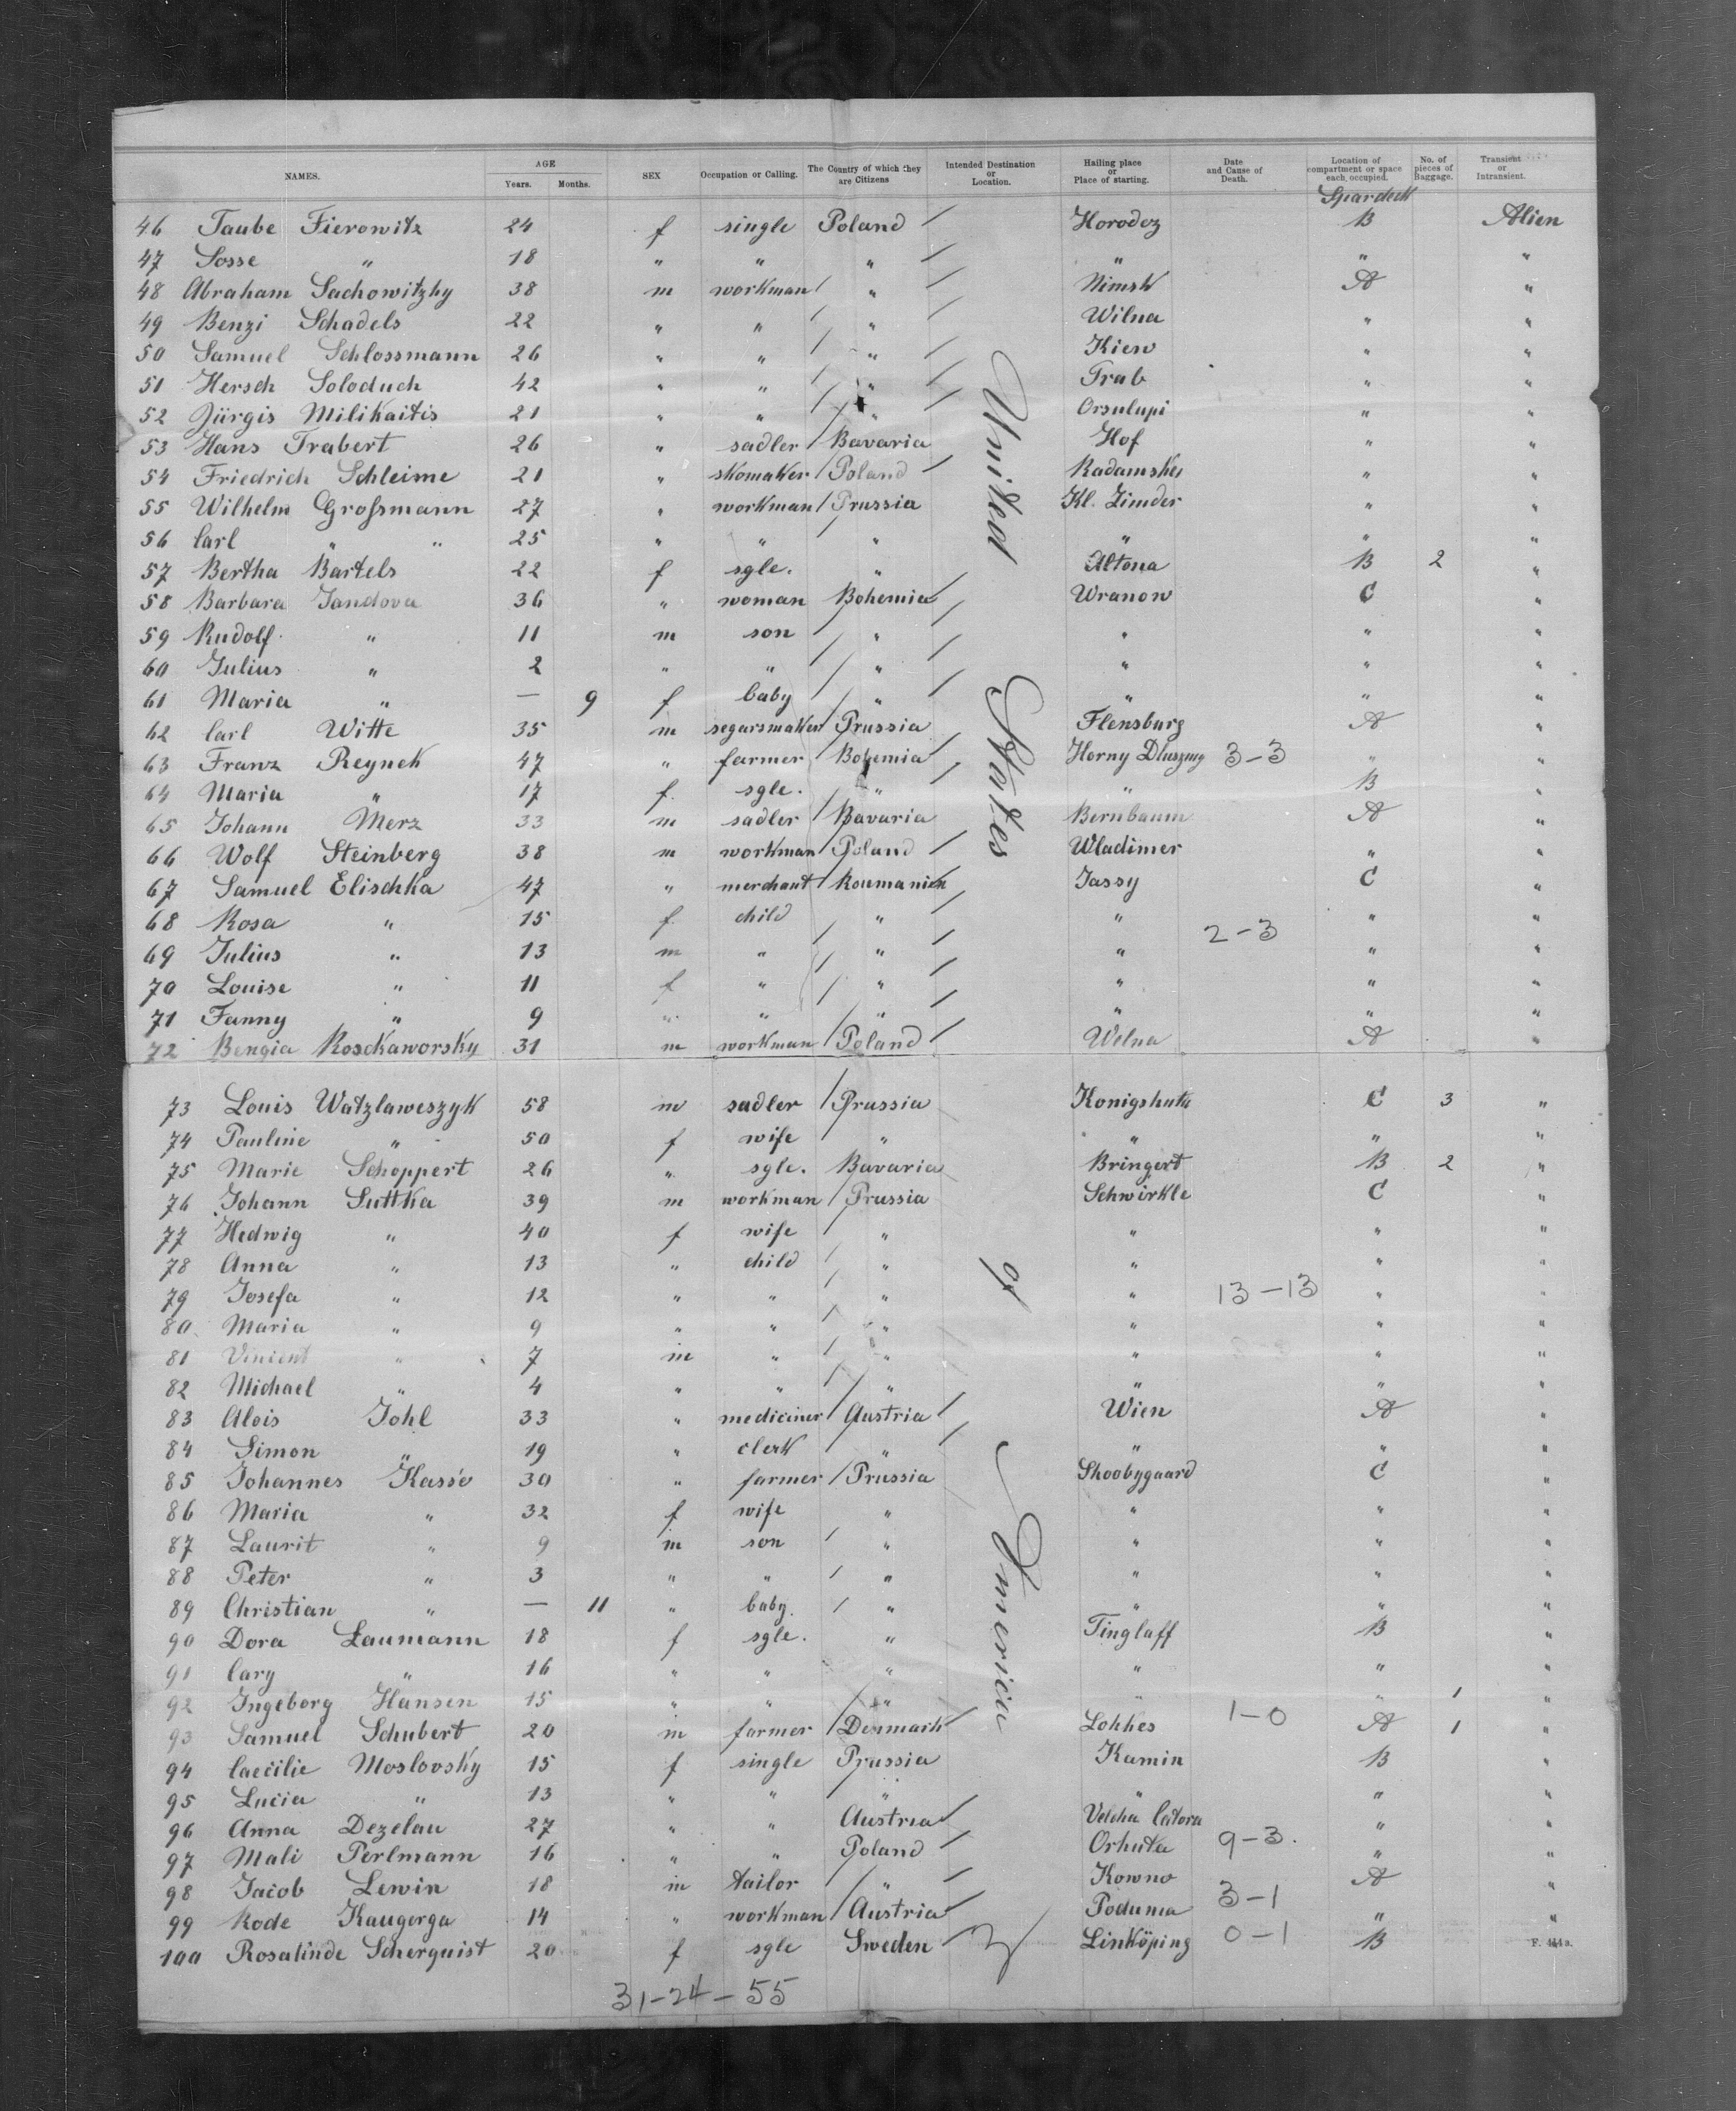 NAMES. AGE Years. Months. SEX Occupation or Calling. The Country of which they are Citizens Intended Destination or Location. Hailing place or Place of starting. Date and Cause of Death. Location of compartment or space each occupied. No. of pieces of Baggage. Transient or Intransient.
Spardeck
46 Taube Fierowitz 24 f single Poland / Horodez B Alien
47 Sosse " 18 " " " / " " "
48 Abraham Sachowitzky 38 m workman / " / Minsk A "
49 Benzi Schadels 22 " " / " / Wilna " "
50 Samuel Schlossmann 26 " " / " / Kiew " "
51 Hersch Soloduch 42 " " / " / Trab " "
52 Jürgis Milikaitis 21 " " / " / Orsulupi " "
53 Hans Trabert 26 " sadler / Bavaria Hof " "
54 Friedrich Schleime 21 " shomaker / Poland / Radamsker " "
55 Wilhelm Großmann 27 " workman / Prussia Kl. Zimder " "
56 Carl " " 25 " " / " " " "
57 Bertha Bartels 22 f sgle. " Altona B 2 "
58 Barbara Jandova 36 " woman Bohemia / Wranow C "
59 Rudolf " 11 m son / " / " " "
60 Julius " 2 " " / " / " " "
61 Maria " — 9 f baby / " / " " "
62 Carl Witte 35 m segarsmaker Prussia Flensburg A "
63 Franz Reynek 47 " farmer / Bohemia / Horny Dluszny 3-3 " "
64 Maria " 17 f. sgle. " / " B "
65 Johann Merz 33 m sadler / Bavaria Bernbaum A "
66 Wolf Steinberg 38 m workman / Poland / Wladimer " "
67 Samuel Elischka 47 " merchant / Roumanien / Jassy C "
68 Rosa " 15 f child " / " " "
2-3
69 Julius " 13 m " / " / " " "
70 Louise " 11 f " / " / " " "
71 Fanny " 9 " " / " / " " "
72 Bengia Rosckaworsky 31 m workman / Poland / Welna A "
73 Louis Watzlaweszyk 58 m sadler / Prussia Konigshutte C 3 "
74 Pauline " 50 f wife / " " " "
75 Marie Schoppert 26 " sgle. Bavaria Bringert B 2 "
76 Johann Suttka 39 m workman / Prussia Schwirkle C "
77 Hedwig " 40 f wife / " " " "
78 Anna " 13 " child / " " " "
79 Josefa " 12 " " / " " 13-13 " "
80 Maria " 9 " " / " " " "
81 Vincent " 7 m " / " " " "
82 Michael " 4 " " / " " " "
83 Alois Johl 33 " mediciner / Austria / Wien A "
84 Simon " 19 " clerk / " / " " "
85 Johannes Kasso 30 " farmer / Prussia Skoobygaard C "
86 Maria " 32 f wife " " " "
87 Laurit " 9 m son / " " " "
88 Peter " 3 " " / " " " "
89 Christian " — 11 " baby. / " " " "
90 Dora Laumann 18 f sgle. " Tinglaff B "
91 Cary " 16 " " " " " "
92 Ingeborg Hansen 15 " " / " " " 1 "
93 Samuel Schubert 20 m farmer / Denmark / Lohhes 1-0 A 1 "
94 Caecilie Moslovsky 15 f single Prussia Kamin B "
95 Lucia " 13 " " " " " "
96 Anna Dezelau 27 " " Austria / Velcha Catora " "
97 Mali Perlmann 16 " " Poland / Orhuta 9-3. " "
98 Jacob Lewin 18 m tailor / " / Kowno A "
99 Rode Kaugerga 14 " workman / Austria / Poduma 3-1 " "
100 Rosalinde Scherquist 20 f sgle Sweden / Linköping 0-1 B
United States of America
F. 444a.
31-24-55